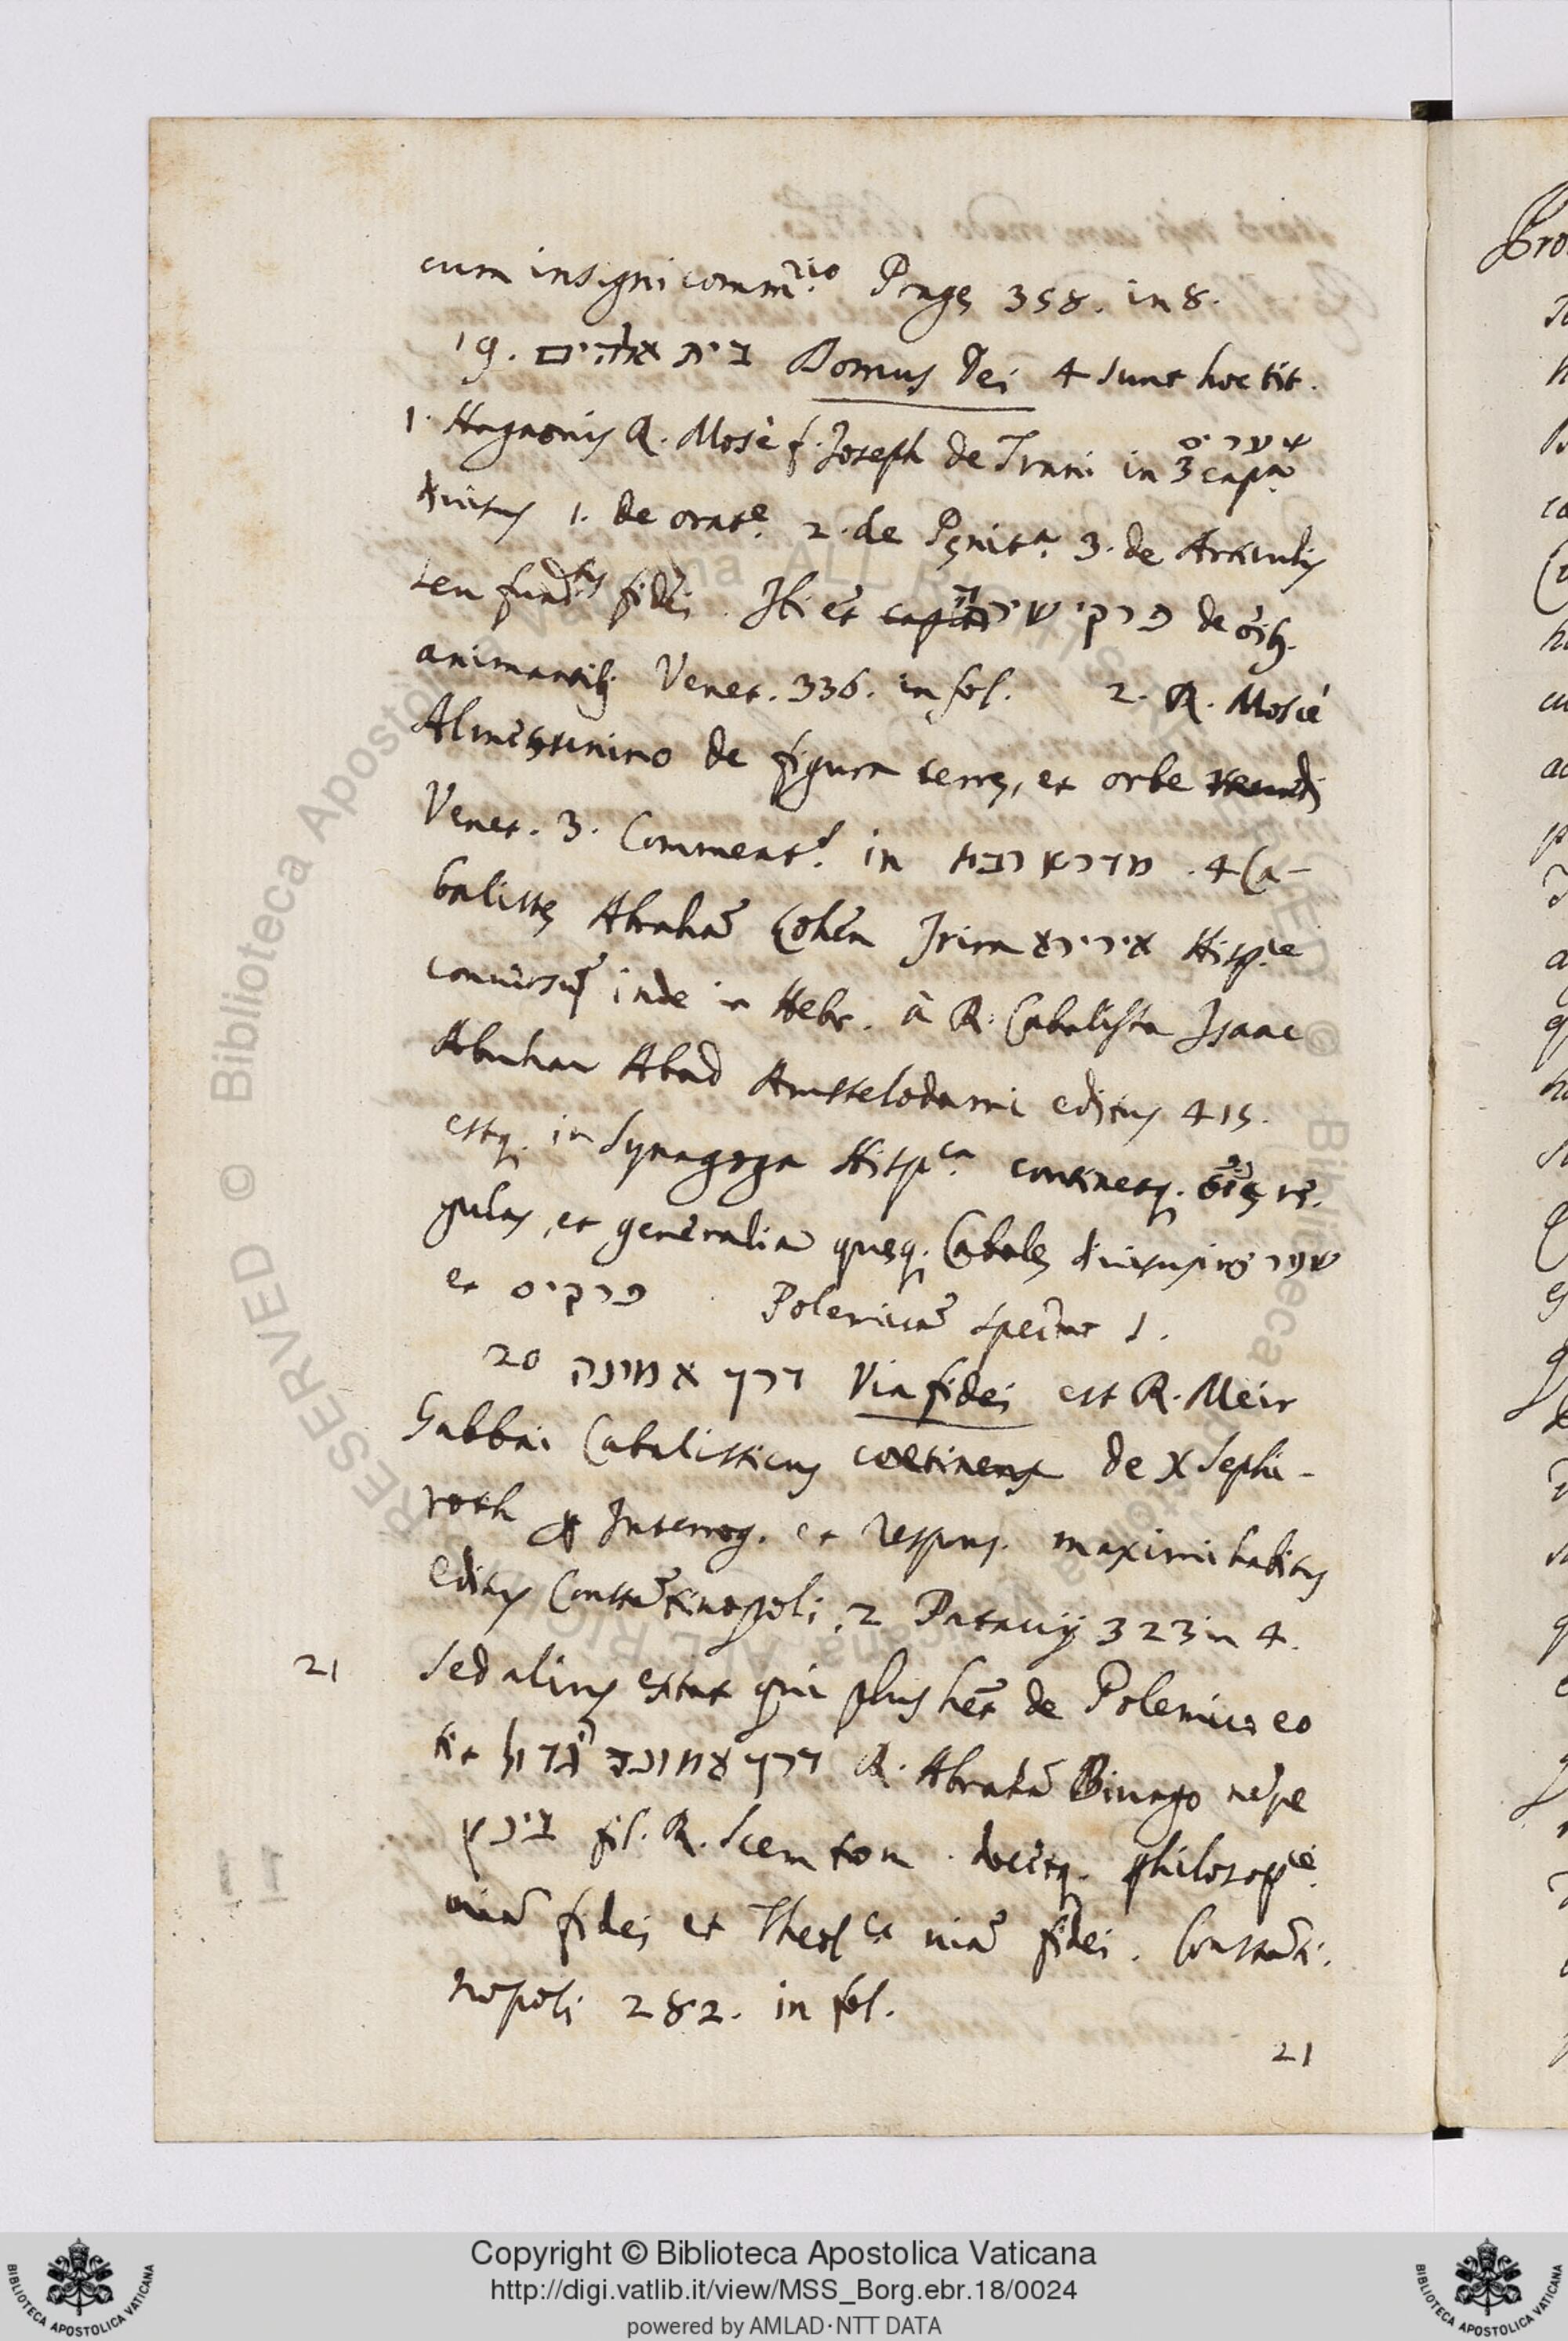 cum insigni comm.rio Pragę 358. in 8.
19. בית אלהים Domus Dei 4 sunt hoc tit.
1. Hagaonis R. Mosè f. Joseph de Trani in 3 cap.a שערים
divisus 1. de orat.e 2. de Pęnit.a 3. de Articulis
seu fund.tis fidei. Iti et capita פרקי שירה de oib.
animantib. Venet. 336. in fol. 2. R. Mosè
Almosnino de figura terrę, et orbe
Venet. 3. Comment. in מדרש רבות . 4 Ca-
balistę Abrahã Cohen Irira אירירא Hisp.ce
conversus inde in Hebr. à R. Cabalista Isaac
Abuhau Abad Amstelodami editus 415.
estq. in Synagoga Hisp.ca continetq. oẽs re.
gulas, et generalia quęq. Cabalę divisus in שער
et פרקים . Polemicã speciat 1.
20 דרך אמונה Via fidei est R. Meir
Gabbai Cabalisticus continens de X Sephi-
roth Interrog. et respons. maximi habitus
editus Constãtinopoli, 2 Patavij 323 in 4.
21 Sed alius extat qui plus het de Polemica eo
tit דרך אמונה גדול R. Abrahã Bivago nempe
ביבג fil. R. Scem tom. docetq. philosop.ce
viã fidei et Theol.ce viã fidei. Constãti.
nopoli 282. in fol.
21
Copyright © Biblioteca Apostolica Vaticana
http://digi.vatlib.it/view/MSS_Borg.ebr.18/0024
powered by AMLAD·NTT DATA